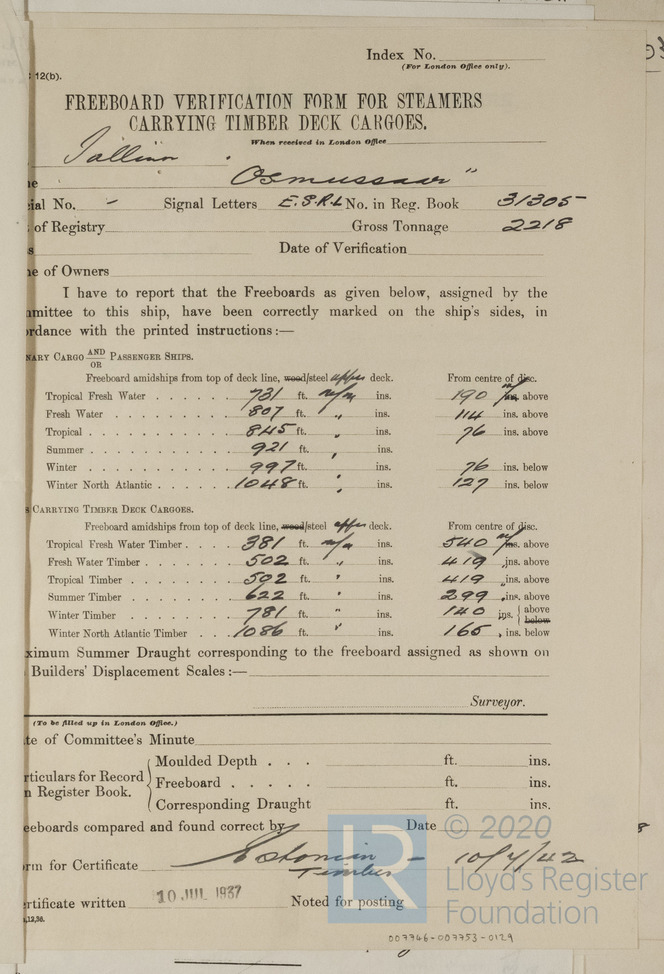 Index No.
(For London Office only).
12(b).
FREEBOARD VERIFICATION FORM FOR STEAMERS
CARRYING TIMBER DECK CARGOES.
When received in London Office
Tallinn
Osmussaar"
ial No. - Signal Letters E.S.R.L No. in Reg. Book 31305
of Registry Gross Tonnage 2218
s Date of Verification
e of Owners
I have to report that the Freeboards as given below, assigned by the
mmittee to this ship, have been correctly marked on the ship's sides, in
rdance with the printed instructions :—
NARY CARGO AND/OR PASSENGER SHIPS.
Freeboard amidships from top of deck line, wood/steel upper deck. From centre of disc.
Tropical Fresh Water 731 ft. m/m ins. 190 m/m ins. above
Fresh Water 807 ft. " ins. 114 ins. above
Tropical 845 ft. " ins. 76 ins. above
Summer 921 ft. " ins.
Winter 997 ft. " ins. 76 ins. below
Winter North Atlantic 1048 ft. " ins. 127 ins. below
CARRYING TIMBER DECK CARGOES.
Freeboard amidships from top of deck line, wood/steel upper deck. From centre of disc.
Tropical Fresh Water Timber 381 ft. m/m ins. 540 m/m ins. above
Fresh Water Timber 502 ft. " ins. 419 " ins. above
Tropical Timber 502 ft. " ins. 419 " ins. above
Summer Timber 622 ft. " ins. 299 " ins. above
Winter Timber 781 ft. " ins. 140 ins. { above below
Winter North Atlantic Timber 1086 ft. " ins. 165 " ins. below
ximum Summer Draught corresponding to the freeboard assigned as shown on
Builders' Displacement Scales :—
Surveyor.
(To be filled up in London Office.)
te of Committee's Minute
Moulded Depth . . . ft. ins.
rticulars for Record
Freeboard . . . . . ft. ins.
n Register Book.
Corresponding Draught ft. ins.
eeboards compared and found correct by Date
© 2020
rm for Certificate Estonian - 10/7/42
Timber
Lloyd's Register
Foundation
LR
rtificate written 10 JUL 1937 Noted for posting
,12,36.
007746-007753-0129